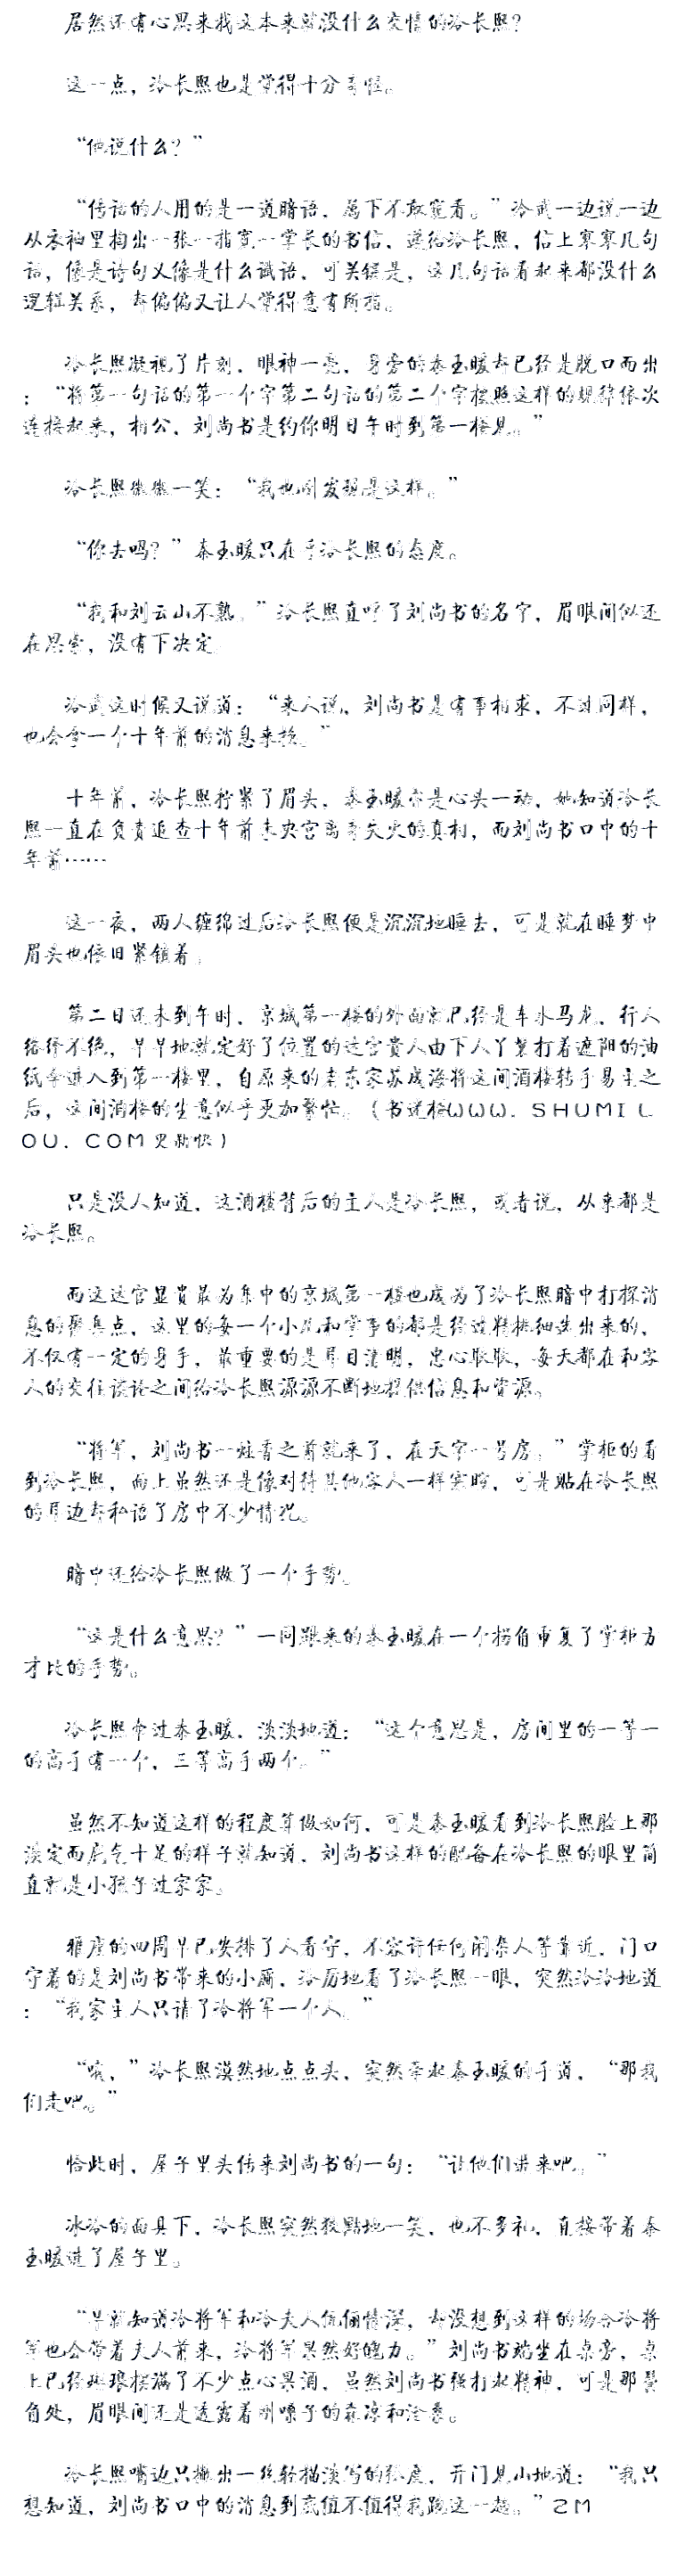 居然还有心思来找这本来就没什么交情的冷长熙？
这一点，冷长熙也是觉得十分奇怪。
“他说什么？”
“传话的人用的是一道暗语，属下不敢窥看。”冷武一边说一边
从衣袖里掏出一张一指宽一掌长的书信，递给冷长熙，信上寥寥几句
话，像是诗句又像是什么谶语，可关键是，这几句话看起来都没什么
逻辑关系，却偏偏又让人觉得意有所指。
冷长熙凝视了片刻，眼神一亮，身旁的秦玉暖却已经是脱口而出
：“将第一句话的第一个字第二句话的第二个字按照这样的规律依次
连接起来，相公，刘尚书是约你明日午时到第一楼见。”
冷长熙微微一笑：“我也刚发现是这样。”
“你去吗？”秦玉暖只在乎冷长熙的态度。
“我和刘云山不熟。”冷长熙直呼了刘尚书的名字，眉眼间似还
在思索，没有下决定。
冷武这时候又说道：“来人说，刘尚书是有事相求，不过同样，
也会拿一个十年前的消息来换。”
十年前，冷长熙拧紧了眉头，秦玉暖亦是心头一动，她知道冷长
熙一直在负责追查十年前未央宫离奇失火的真相，而刘尚书口中的十
年前……
这一夜，两人缠绵过后冷长熙便是沉沉地睡去，可是就在睡梦中
眉头也依旧紧锁着。
第二日还未到午时，京城第一楼的外面就已经是车水马龙，行人
络绎不绝，早早地就定好了位置的达官贵人由下人丫鬟打着遮阳的油
纸伞进入到第一楼里，自原来的老东家苏成海将这间酒楼转手易主之
后，这间酒楼的生意似乎更加繁忙。（书迷楼WWW．SHUMIL
OU．COM更新快）
只是没人知道，这酒楼背后的主人是冷长熙，或者说，从来都是
冷长熙。
而这达官显贵最为集中的京城第一楼也成为了冷长熙暗中打探消
息的聚集点，这里的每一个小儿和掌事的都是经过精挑细选出来的，
不仅有一定的身手，最重要的是耳目清明，忠心耿耿，每天都在和客
人的交往谈论之间给冷长熙源源不断地提供信息和资源。
“将军，刘尚书一炷香之前就来了，在天字一号房。”掌柜的看
到冷长熙，面上虽然还是像对待其他客人一样寒暄，可是贴在冷长熙
的耳边却私语了房中不少情况。
暗中还给冷长熙做了一个手势。
“这是什么意思？”一同跟来的秦玉暖在一个拐角重复了掌柜方
才比的手势。
冷长熙带过秦玉暖，淡淡地道：“这个意思是，房间里的一等一
的高手有一个，三等高手两个。”
虽然不知道这样的程度算做如何，可是秦玉暖看到冷长熙脸上那
淡定而底气十足的样子就知道，刘尚书这样的配备在冷长熙的眼里简
直就是小孩子过家家。
雅座的四周早已安排了人看守，不容许任何闲杂人等靠近，门口
守着的是刘尚书带来的小厮，凌厉地看了冷长熙一眼，突然冷冷地道
：“我家主人只请了冷将军一个人。”
“哦，”冷长熙漠然地点点头，突然牵起秦玉暖的手道，“那我
们走吧。”
恰此时，屋子里头传来刘尚书的一句：“让他们进来吧。”
冰冷的面具下，冷长熙突然狡黠地一笑，也不多礼，直接带着秦
玉暖进了屋子里。
“早就知道冷将军和冷夫人伉俪情深，却没想到这样的场合冷将
军也会带着夫人前来，冷将军果然好魄力。”刘尚书端坐在桌旁，桌
上已经琳琅摆满了不少点心果酒，虽然刘尚书强打起精神，可是那鬓
角处，眉眼间还是透露着刚嗓子的苍凉和沧桑。
冷长熙嘴边只撇出一丝轻描淡写的弧度，开门见山地道：“我只
想知道，刘尚书口中的消息到底值不值得我跑这一趟。”ZM